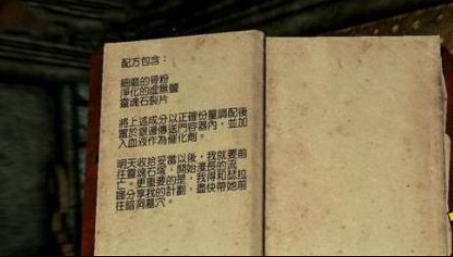 配方包含:
細磨的骨粉
淨化的虛無鹽
靈魂石裂片
將上述成分以正確份量調配後
置於銀邊傳送門容器內，並加
入血液作為催化劑。
明天收拾妥當以後，我就要前
往靈魂石塚，開始漫長的流
亡。更重要的是，我得和瑟拉
娜分享我的計劃，盡快帶她前
往暗洞墓穴。